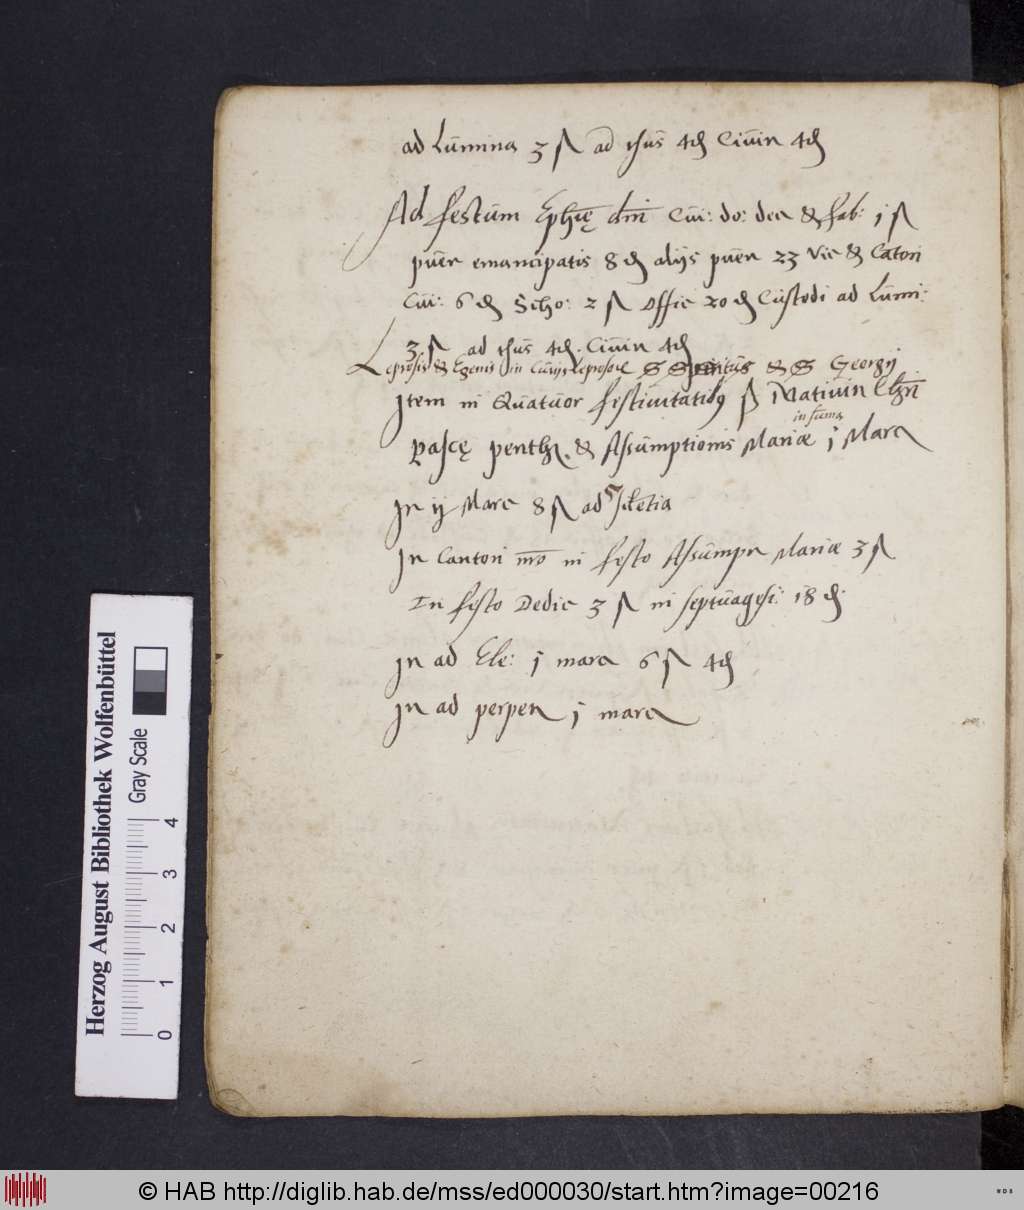 ad Lumina 3 ß ad thus 4 ₰ Civin 4 ₰
Ad festum Ephię dni Cui: do: den & fab: j ß
puen emancipatis 8 ₰ alijs puen 23 vic & Canton
Cui: 6 ₰ Scho: 2 ß Offic 20 ₰ Custodi ad Lumi:
3 ß ad thus 4 ₰. Civin 4 ₰
Leprosis & Egenis in Curijs Leprosor S Spiritus & S Georgij
Item in Quatuor festivitatibus Nativin Chri
in suma
Pascę penth. & Assumptionis Mariæ j Marc
In ij Marc 8 ß ad
In Canton in festo Assumpn Mariæ 3 ß
In festo Dedic 3 ß in septuagesi: 18 ₰
In ad Ele: j marc 6 ß 4 ₰
In ad perpen j marc
Herzog August Bibliothek Wolfenbüttel
Gray Scale
0 1 2 3 4
© HAB http://diglib.hab.de/mss/ed000030/start.htm?image=00216